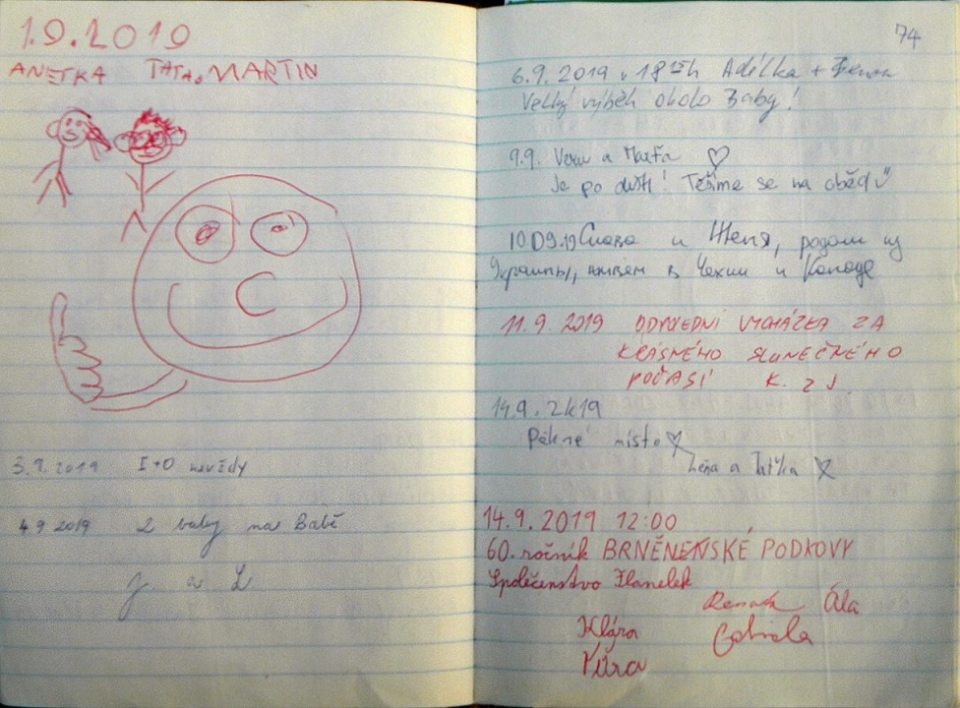 1.9.2019
ANETKA TATA MARTIN
3.9.2019 I+O navždy
4.9.2019 2 baby na Babě
J a L
74
6.9.2019 v 18 h Adélka +
Velký výběh okolo Baby!
9.9. a ♡
Je po dešti! Těšíme se na oběd
10.09.19 Слава и Женя, родом из
Украины, живём в Чехии и Канаде
11.9.2019 ODPOLEDNÍ VYCHÁZKA ZA
KRÁSNÉHO SLUNEČNÉHO
POČASÍ K. z J.
14.9.2k19
Pěkné místo ♡
Léňa a Taťka
14.9.2019 12:00
60. ročník BRNĚNSKÉ PODKOVY
Společenstvo Flanelek
Renata Ála
Klára Gabriela
Věra